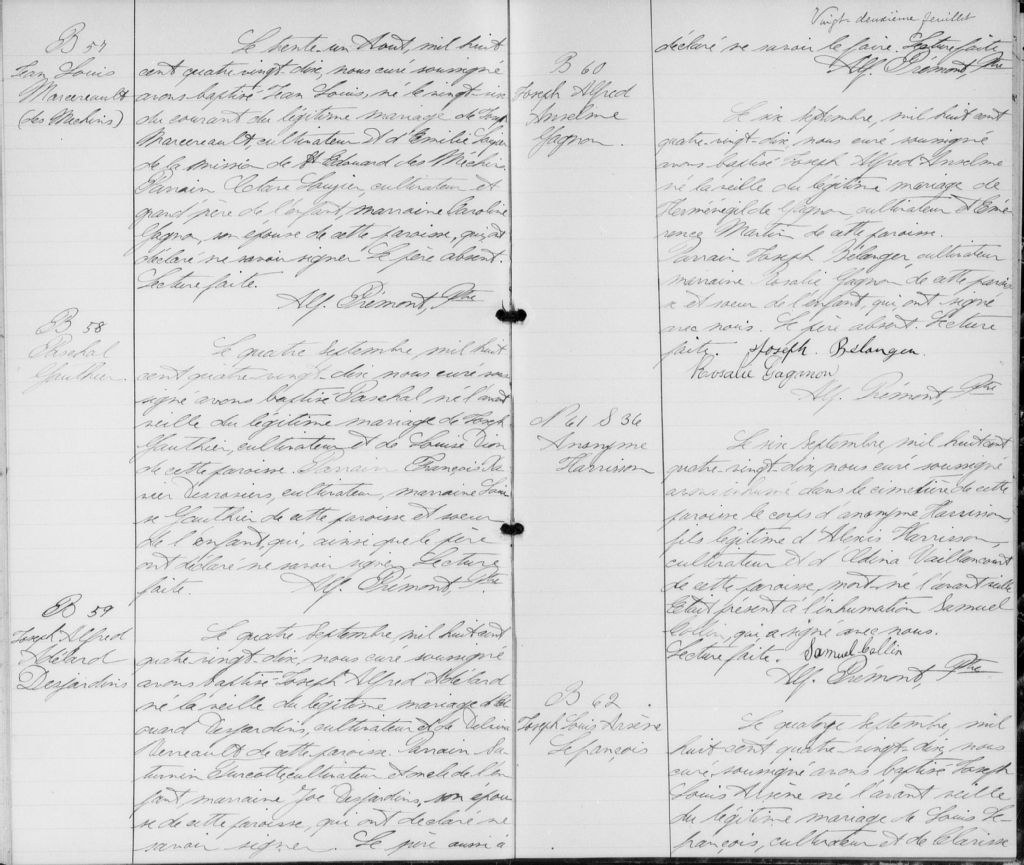 B 57
Jean Louis
Marcereault
(des Méchins)
Le trente-un Août, mil huit
cent quatre vingt-dix, nous curé soussigné
avons baptisé Jean Louis, né le vingt-six
du courant du légitime mariage de Joseph
Marcereault, cultivateur et d'Emilie Saucier
de la mission de St Edouard des Méchins.
Parrain Saucier, cultivateur et
grand'père de l'enfant, marraine Caroline
Gagnon, son épouse de cette paroisse, qui ont
déclaré ne savoir signer. Le père absent.
Lecture faite.
Alf. Prémont, Ptre
B 58
Paschal
Gauthier
Le quatre Septembre, mil huit
cent quatre-vingt-dix, nous curé sous
signé avons baptisé Paschal né l'avant
veille du légitime mariage de Joseph
Gauthier, cultivateur et de Louise Dion
de cette paroisse. Parrain François Xa
vier Desrosiers, cultivateur, marraine Loui
se Gauthier de cette paroisse et soeur
de l'enfant, qui, ainsi que le père
ont déclaré ne savoir signer. Lecture
faite. Alf. Prémont, Ptre
B 59
Joseph Alfred
Adélard
Desjardins
Le quatre Septembre, mil huit cent
quatre vingt-dix, nous curé soussigné
avons baptisé Joseph Alfred Adélard
né la veille du légitime mariage d'Ed
ouard Desjardins, cultivateur et de Delvina
Verreault de cette paroisse. Parrain Sa
turnin Turcotte cultivateur et oncle de l'en
fant marraine Desjardins, son épou
se de cette paroisse, qui ont déclaré ne
savoir signer. Le père aussi a
Vingt-deuxième feuillet
déclaré ne savoir le faire. Lecture faite
Alf. Prémont, Ptre
B 60
Joseph Alfred
Anselme
Gagnon
Le six septembre, mil huit cent
quatre-vingt-dix, nous curé soussigné
avons baptisé Joseph Alfred Anselme
né la veille du légitime mariage de
Herménégilde Gagnon, cultivateur et d'Émé
rence Martin de cette paroisse.
Parrain Joseph Bélanger cultivateur
marraine Rosalie Gagnon de cette parois
se et soeur de l'enfant, qui ont signé
avec nous. Le père absent. Lecture
faite. Joseph Belanger
Rosalie Gagnnon
Alf. Prémont, Ptre
N 61 S 36
Anonyme
Harrisson
Le six Septembre, mil huit cent
quatre-vingt-dix, nous curé soussigné
avons inhumé dans le cimetière de cette
paroisse le corps d'anonyme Harrisson,
fils légitime d'Alexis Harrisson,
cultivateur et d'Eldina Vaillancourt
de cette paroisse, mort-né l'avant veille
Etait présent à l'inhumation Samuel
Collin, qui a signé avec nous.
Lecture faite. Samuel Collin
Alf. Prémont, Ptre
B 62
Joseph Louis Arsène
Lefrançois
Le quatorze septembre, mil
huit cent quatre-vingt-dix, nous
curé, soussigné avons baptisé Joseph
Louis Arsène né l'avant veille
du légitime mariage de Louis Le
françois, cultivateur et de Clarisse